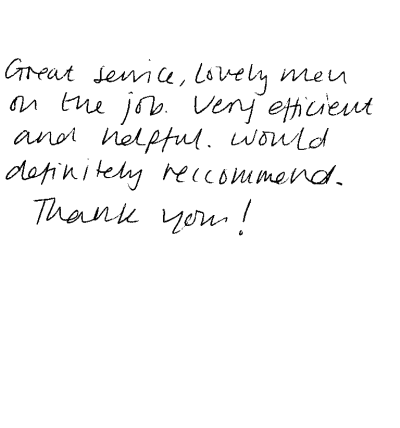 Great service, lovely men
on the job. Very efficient
and helpful. would
definitely reccommend.
Thank you!